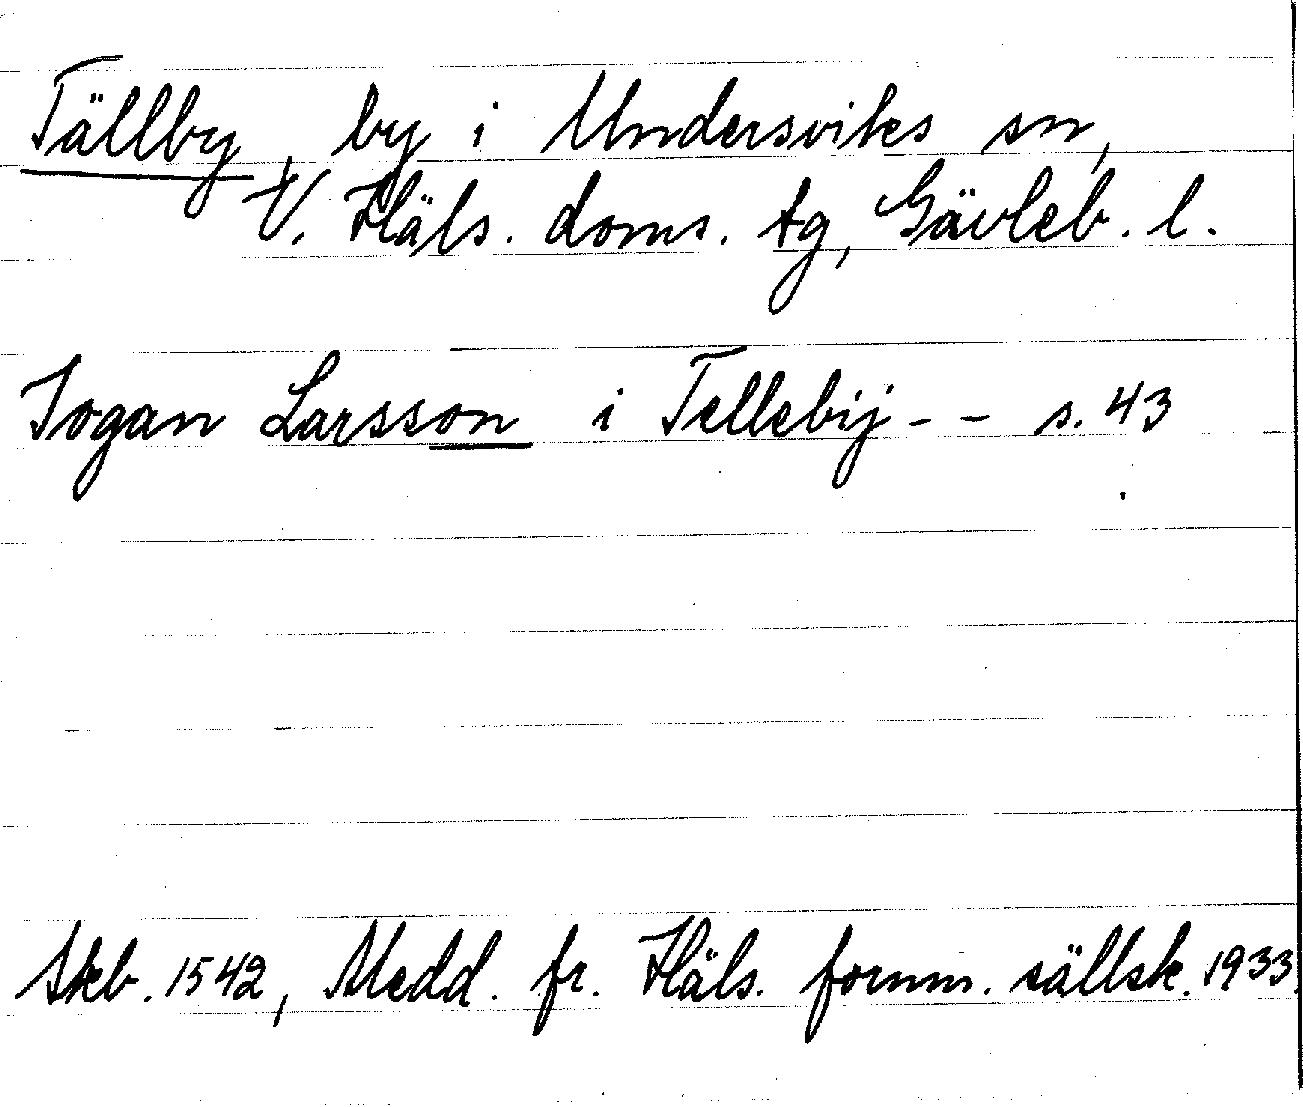 Tällby, by i Undersviks sn,
V. Häls. doms. tg, Gävleb. l.
Jogan Larsson i Tellebij - - s. 43
Skb. 1542, Medd. fr. Häls. fornm. sällsk. 1933.